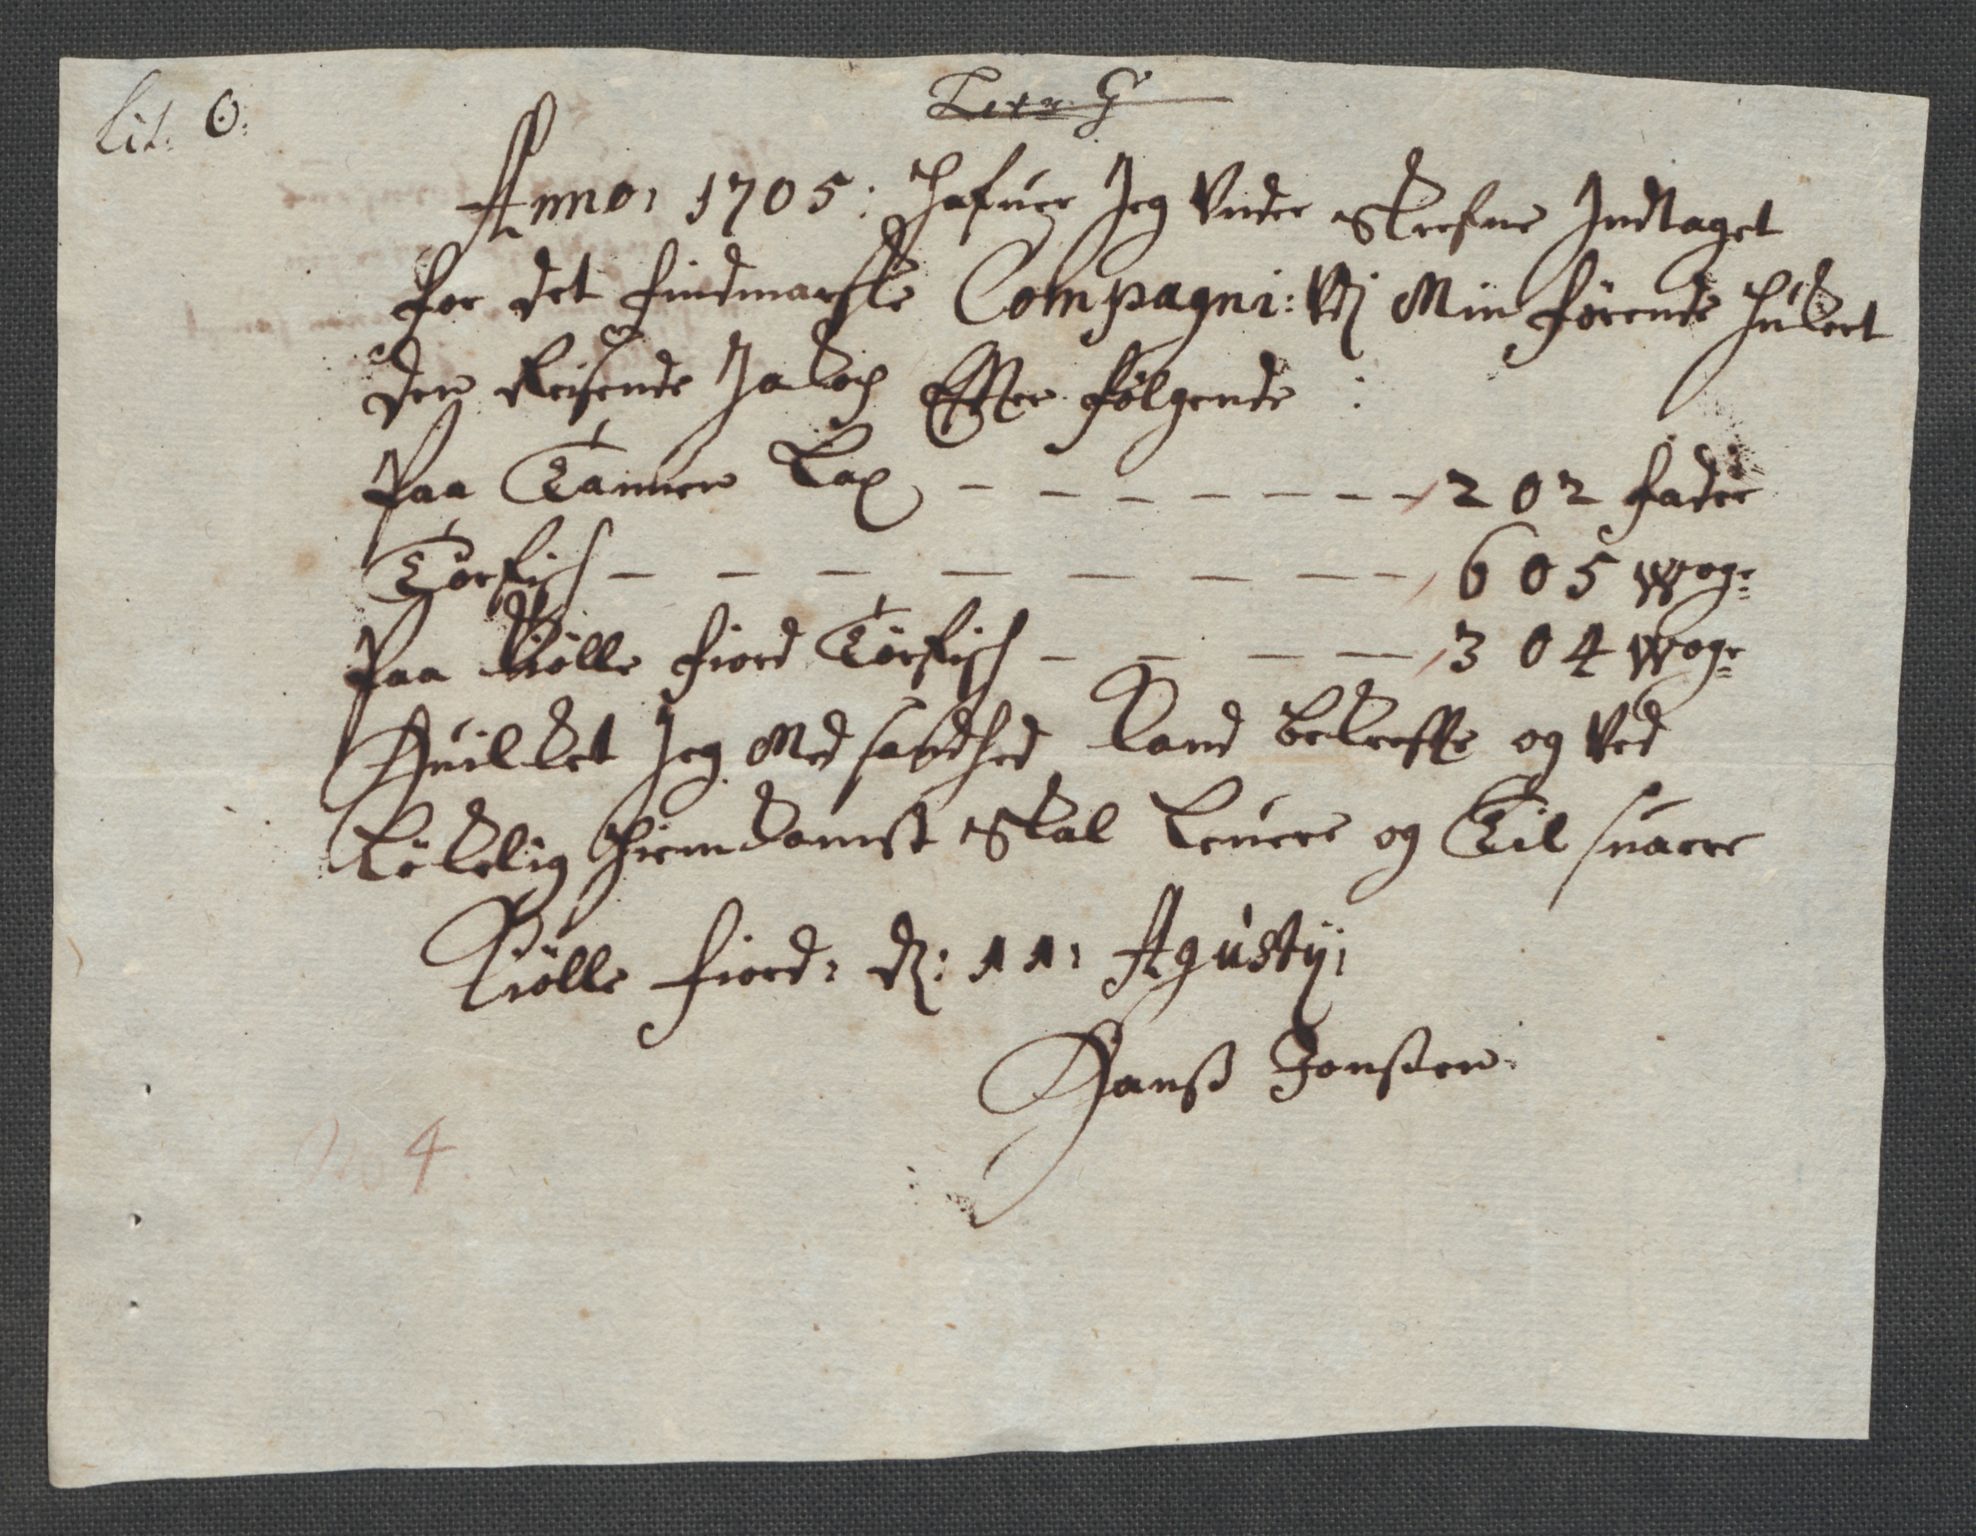 Lit. O.
Litr. G
Anno, 1705: Hafuer Jeg Vnder Skrefne Indtaget
for det findmarske Compagni: Vdj Min førende Hukert
den Reisende Jakop Effter følgende:
Paa Tannen Lax - - - - - - - 202 fader
Törfisch - - - - - - - - 605 woge
Paa Kiølle fiord Törfisch - - - - 304 woge
Huilket Jeg Med sandhed kand bekreffte og Ved
Lökelig Hiemkomst skal Leuere og Til suarre
Kiølle fiord, d: 11, Agusty,
Hanß Jonßen
No 4.